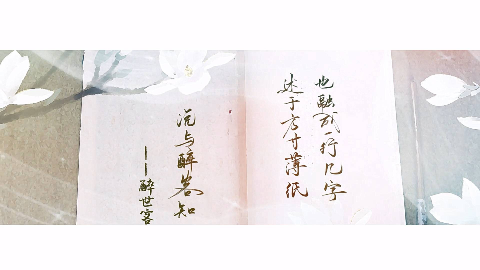 也融成一行几字
述于方寸薄纸
说与醉卷知
——醉世客